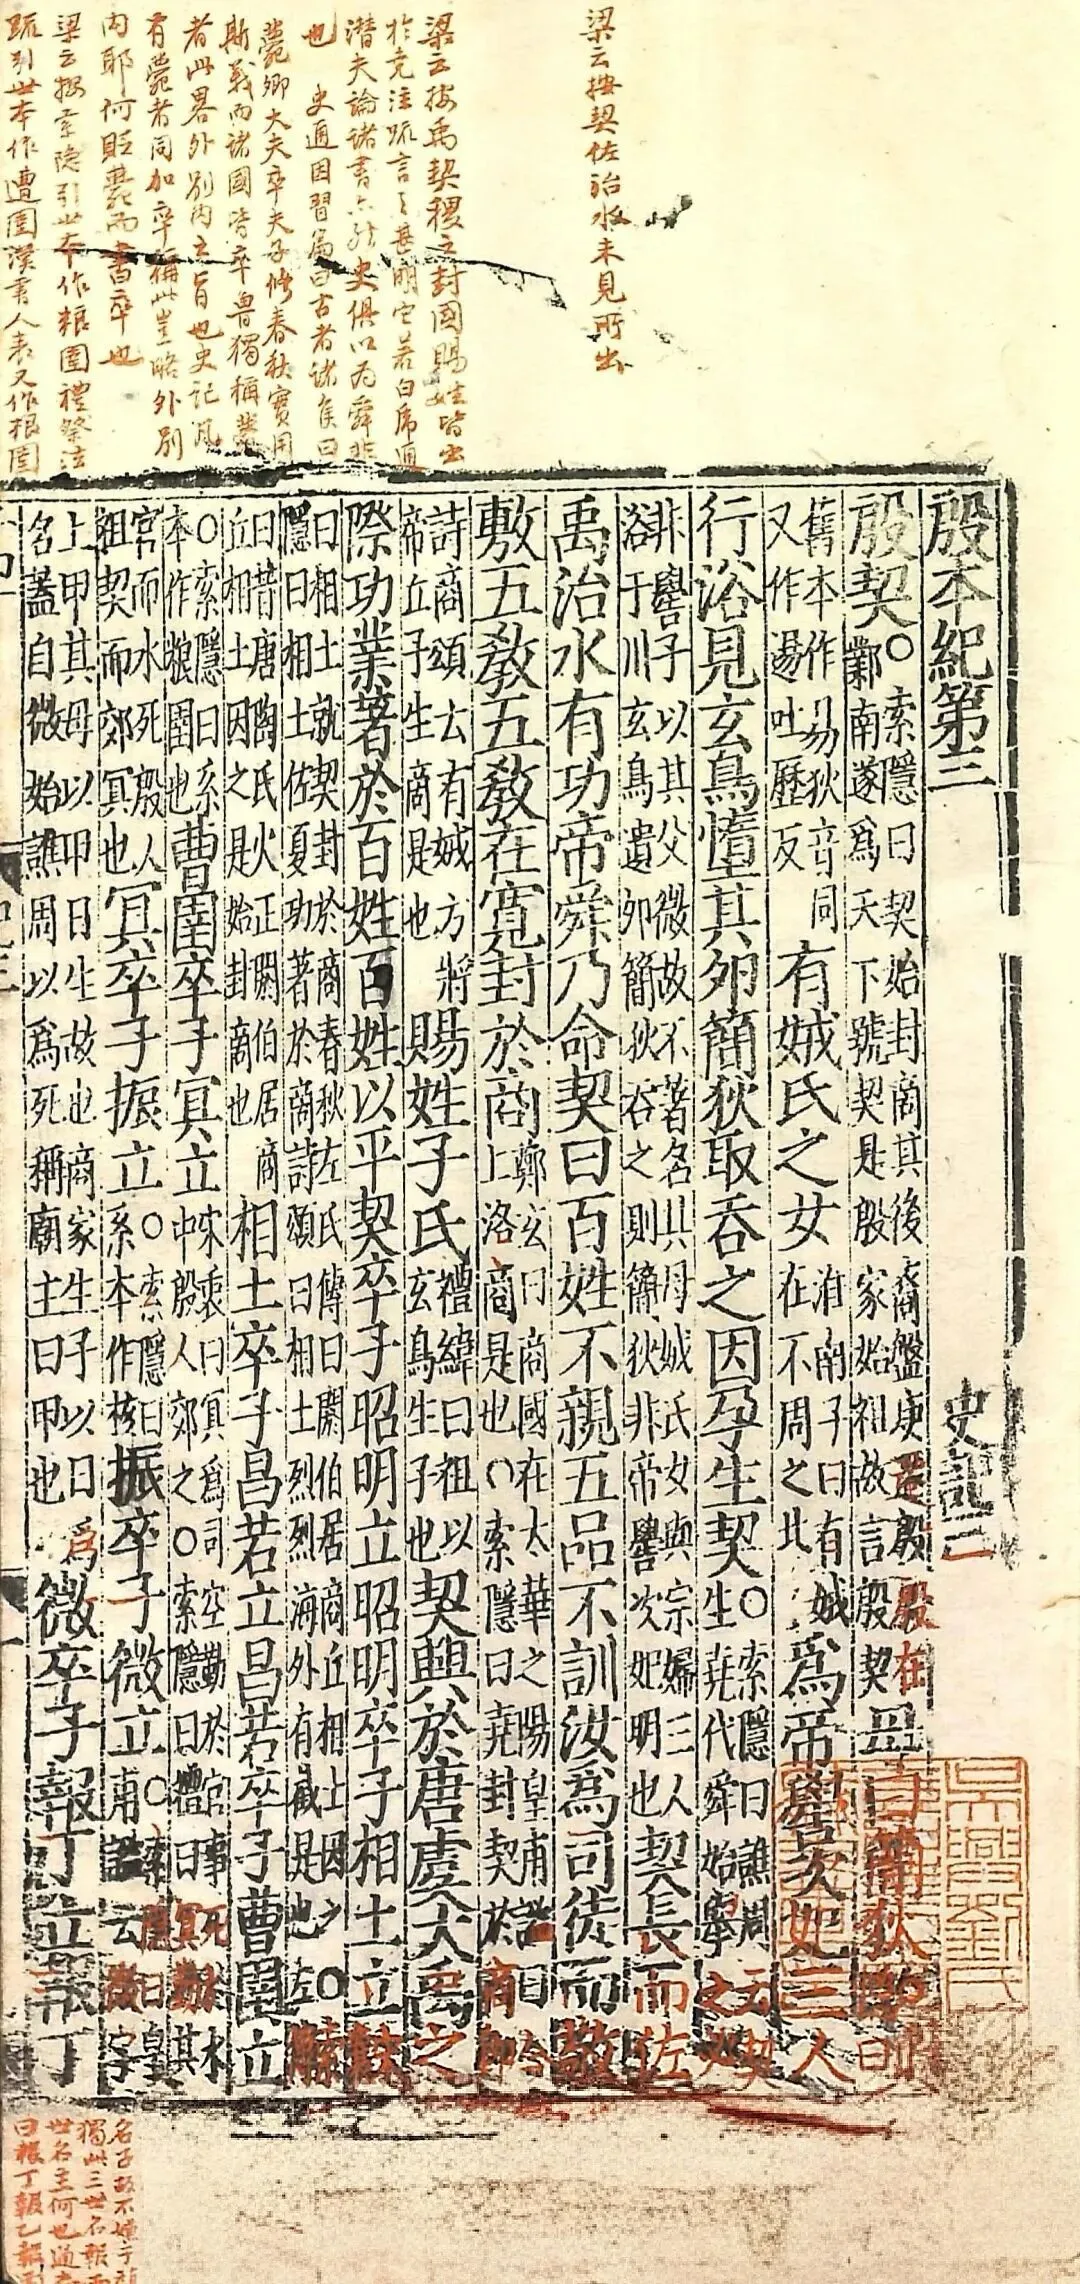 梁云按契佐治水未見所出
梁云按禹契稷之封國賜姓皆出
於堯注疏言之甚明它若白虎通
潛夫論諸書亦然史俱以为舜非
也 史通因習篇曰古者諸侯曰
薨卿大夫卒夫子修春秋實用
斯義而諸國皆卒魯獨稱薨
者此畧外別內之旨也史記凡
有薨者同加卒稱此豈略外別
內耶何貶薨而書卒也
梁云按索隐引世本作粮圉禮祭法
疏引世本作遭圉漢書人表又作根圉
殷本紀第三 史記三
殷契○索隱曰契始封商其後裔盤庚遷殷殷在
鄴南遂爲天下號契是殷家始祖故言殷契母曰簡狄○索隱曰
舊本作易狄音同
又作逷吐歷反有娀氏之女淮南子曰有娀
在不周之北爲帝嚳次妃三人
行浴見玄鳥墮其卵簡狄取吞之因孕生契○索隱曰譙周云契
生堯代舜始舉之必
非嚳子以其父微故不著名其母娀氏女與宗婦三人
浴于川玄鳥遺卵簡狄吞之則簡狄非帝嚳次妃明也契長而佐
禹治水有功帝舜乃命契曰百姓不親五品不訓汝爲司徒而敬
敷五敎五敎在寬封於商鄭玄曰商國在太華之陽皇甫謐曰今
上洛商是也○索隱曰堯封契於商即
詩商頌云有娀方將
帝立子生商是也賜姓子氏禮緯曰祖以
玄鳥生子也契興於唐虞大禹之
際功業著於百姓百姓以平契卒子昭明立昭明卒子相土立
曰相土就契封於商春秋左氏傳曰閼伯居商丘相土因之○索
隱曰相土佐夏功著於商詩頌曰相土烈烈海外有截是也左傳
曰昔唐陶氏火正閼伯居商
丘相土因之是始封商也相土卒子昌若立昌若卒子曹圉立
○索隱曰系
本作粮圉也曹圉卒子冥立宋衷曰冥爲司空勤於官事死水
中殷人郊之○索隱曰禮曰冥勤其
官而水死殷人
祖契而郊冥也冥卒子振立○索隱曰
系本作核振卒子微立○索隱曰皇
甫謐云微字
上甲其母以甲日生故也商家生子以日爲
名蓋自微始譙周以爲死稱廟主曰甲也微卒子報丁立報丁
獨此三世名報而
世名主何也通志
曰報丁報乙報丙
吳興劉氏